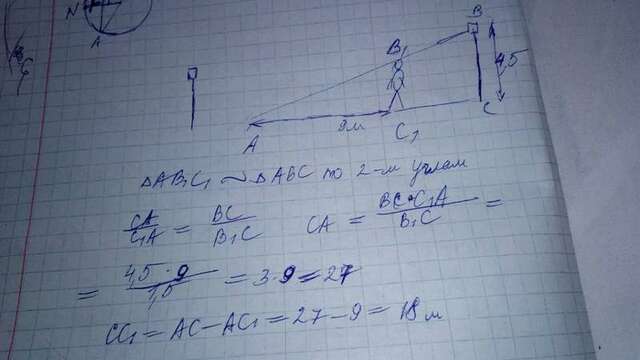 N
A
B
B₁
4,5
9м
A
C₁
C
△AB₁C₁ ~ △ABC по 2-м углам
CA/C₁A = BC/B₁C CA = BC·C₁A/B₁C =
= 4,5·9/1,5 = 3·9 = 27
CC₁ = AC – AC₁ = 27 – 9 = 18 м